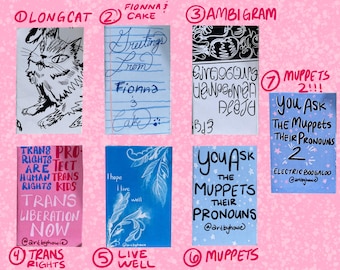 ① LONGCAT
② FIONNA &
CAKE
③ AMBIGRAM
Greetings
From
Fionna
&
Cake
⑦ MUPPETS
2!!!
YOU ASK
THE MUPPETS
THEIR PRONOUNS
2
ELECTRIC BOOGALOO
TRANS
RIGHTS
ARE
HUMAN
RIGHTS
PRO
TECT
TRANS
KIDS
TRANS
LIBERATION
NOW
I hope
I live
well
YOU ASK
THE
MUPPETS
THEIR
PRONOUNS
④ TRANS
RIGHTS
⑤ LIVE
WELL
⑥ MUPPETS